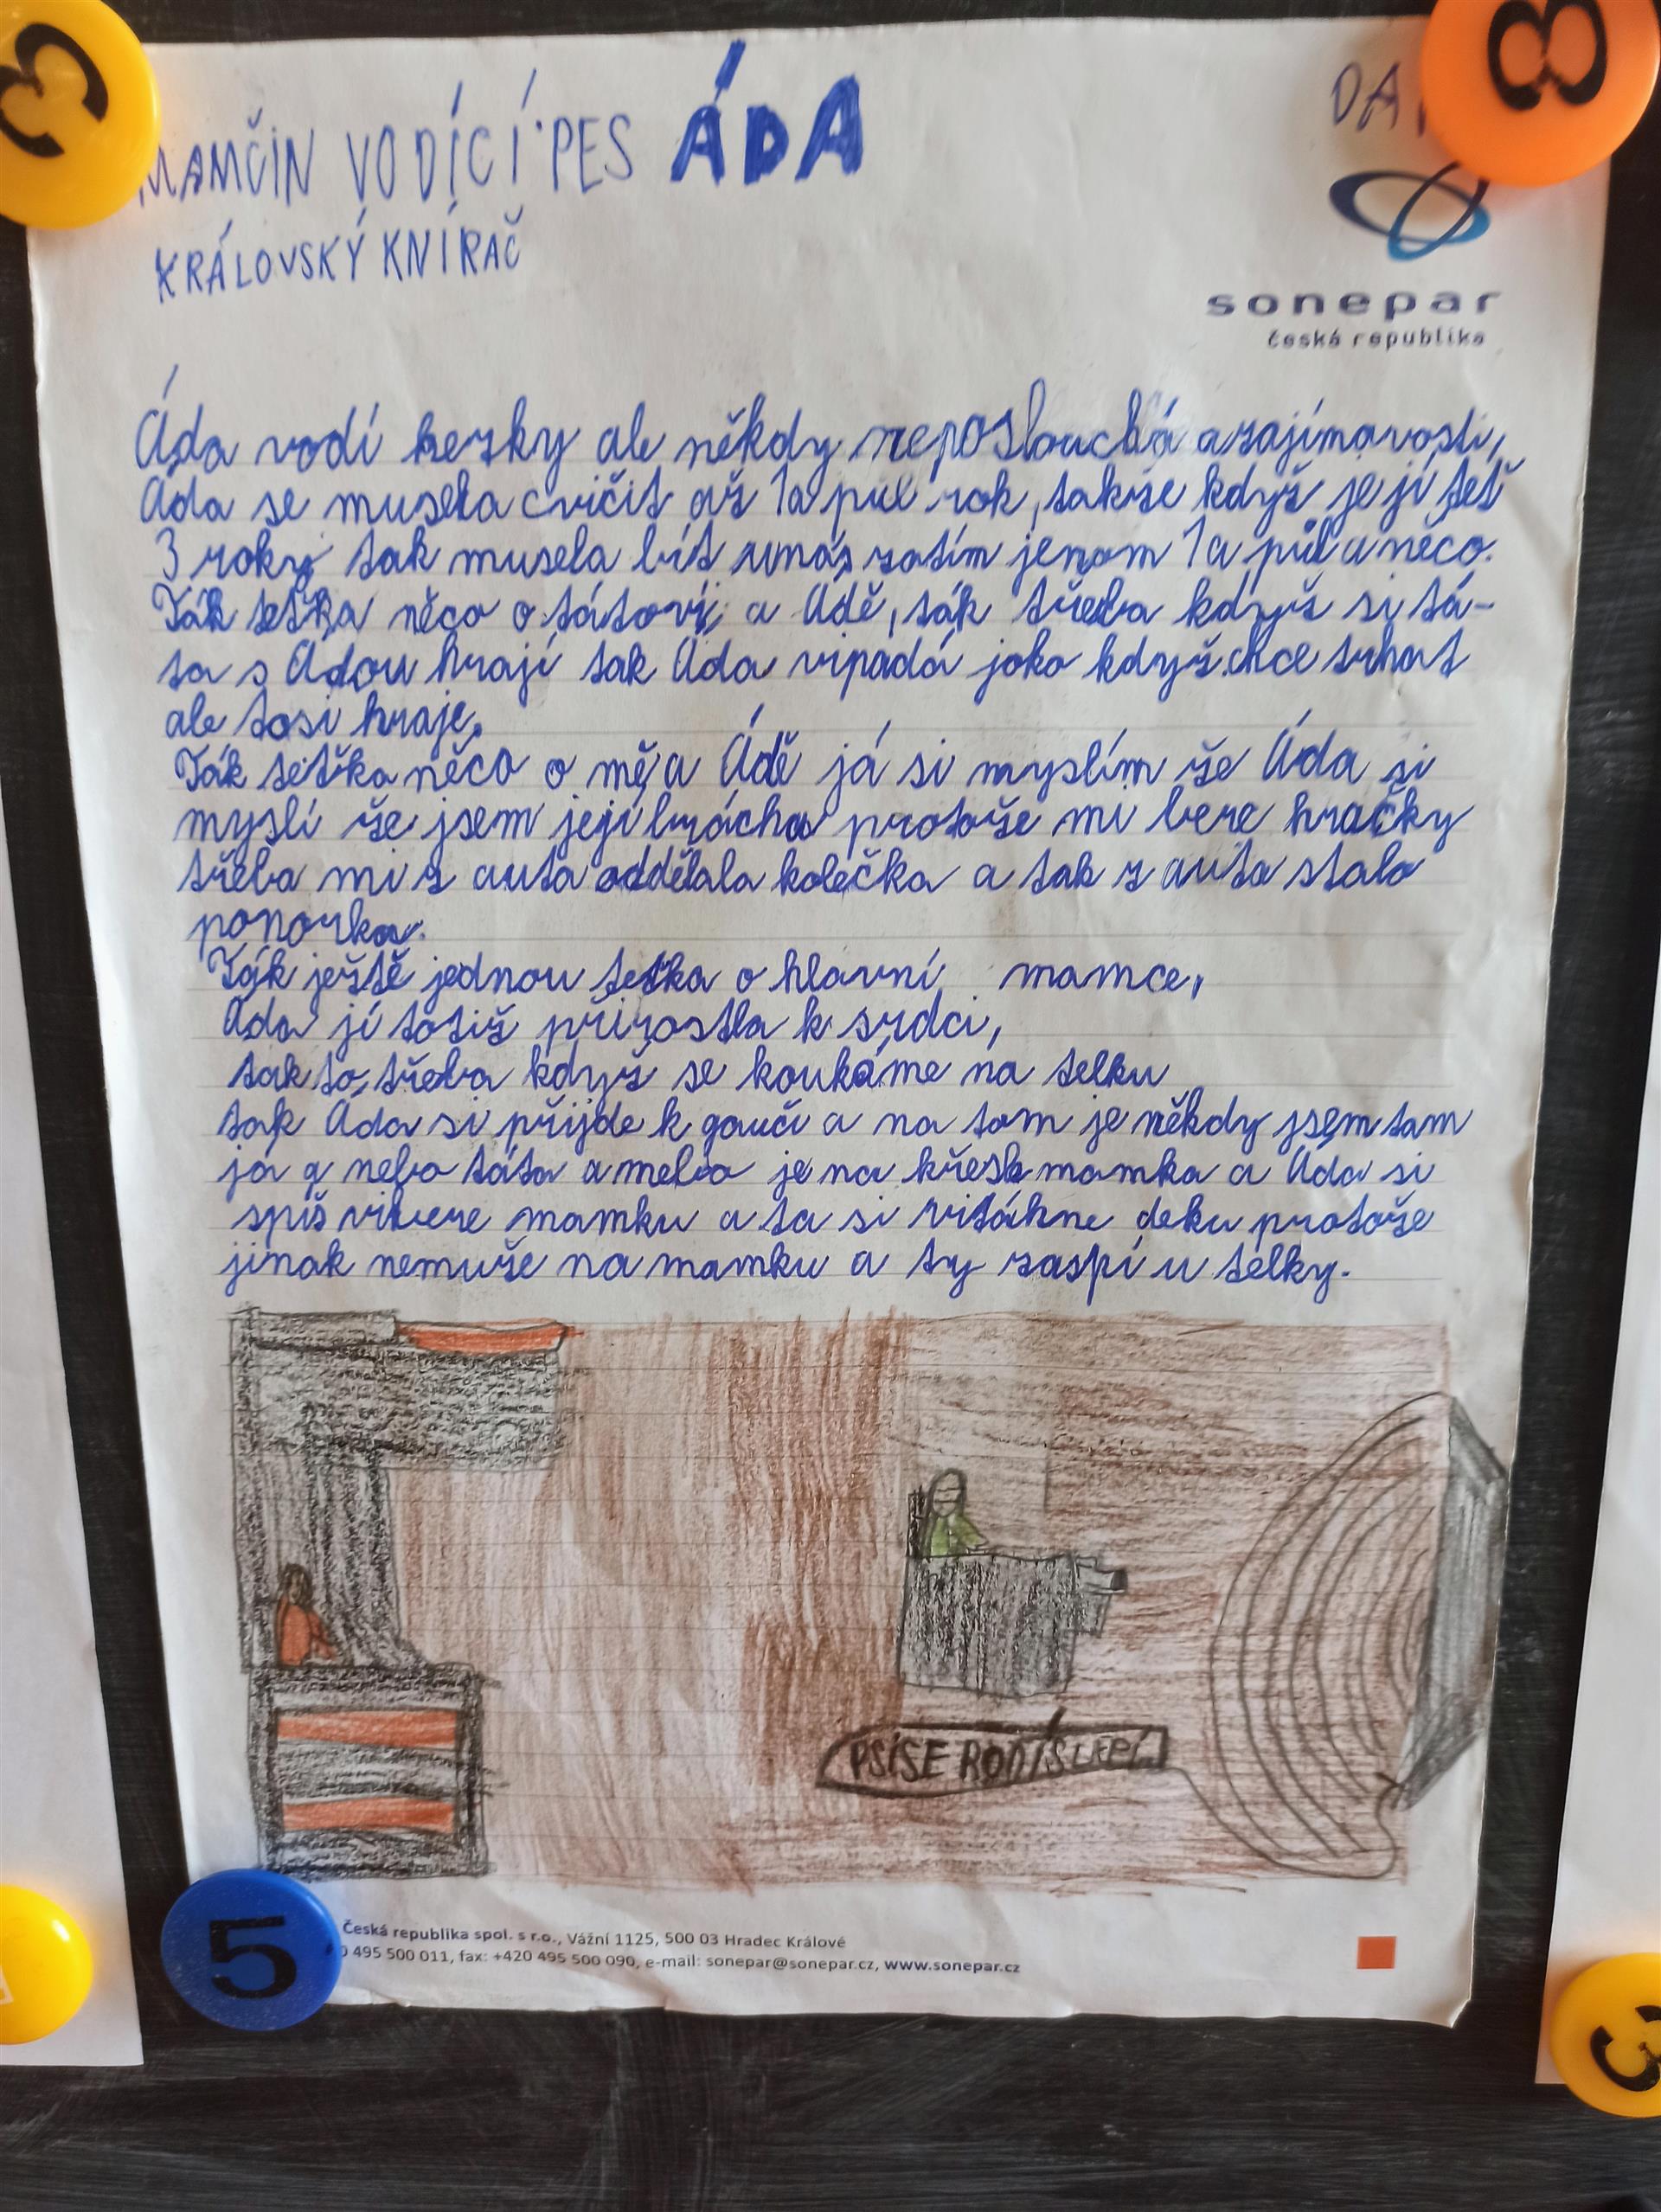 MAMČIN VODÍCÍ PES ÁDA
KRÁLOVSKÝ KNÍRAČ
sonepar
česká republika
Áda vodí hezky ale někdy neposlouchá a zajímavosti,
Áda se musela cvičit až 1a půl rok, takže když je jí teť
3 roky tak musela bít unás zatím jenom 1a půl a něco.
Ták teťka něco o tátovi, a Ádě, ták třeba když si tá-
ta s Ádou hrají tak Áda vipadá jako když chce trhat
ale tosi hraje.
Ták teťka něco o mě a Ádě já si myslím že Áda si
myslí že jsem její brácha protože mi bere hračky
třeba mi z auta oddělala kolečka a tak z auta stala
ponorka.
Ták ještě jednou teťka o hlavní mamce,
Áda jí totiž přirostla k srdci,
tak to, třeba když se koukáme na telku
tak Áda si přijde k gauči a na tom je někdy jsem tam
já a nebo táta a nebo je na křesle mamka a Áda si
spíš vibere mamku a ta si vitáhne deku protože
jinak nemuže na mamku a ty zaspí u telky.
PSÍSE RODÍ SLEPÍ.
Česká republika spol. s r.o., Vážní 1125, 500 03 Hradec Králové
495 500 011, fax: +420 495 500 090, e-mail: sonepar@sonepar.cz, www.sonepar.cz
5
3
8
3